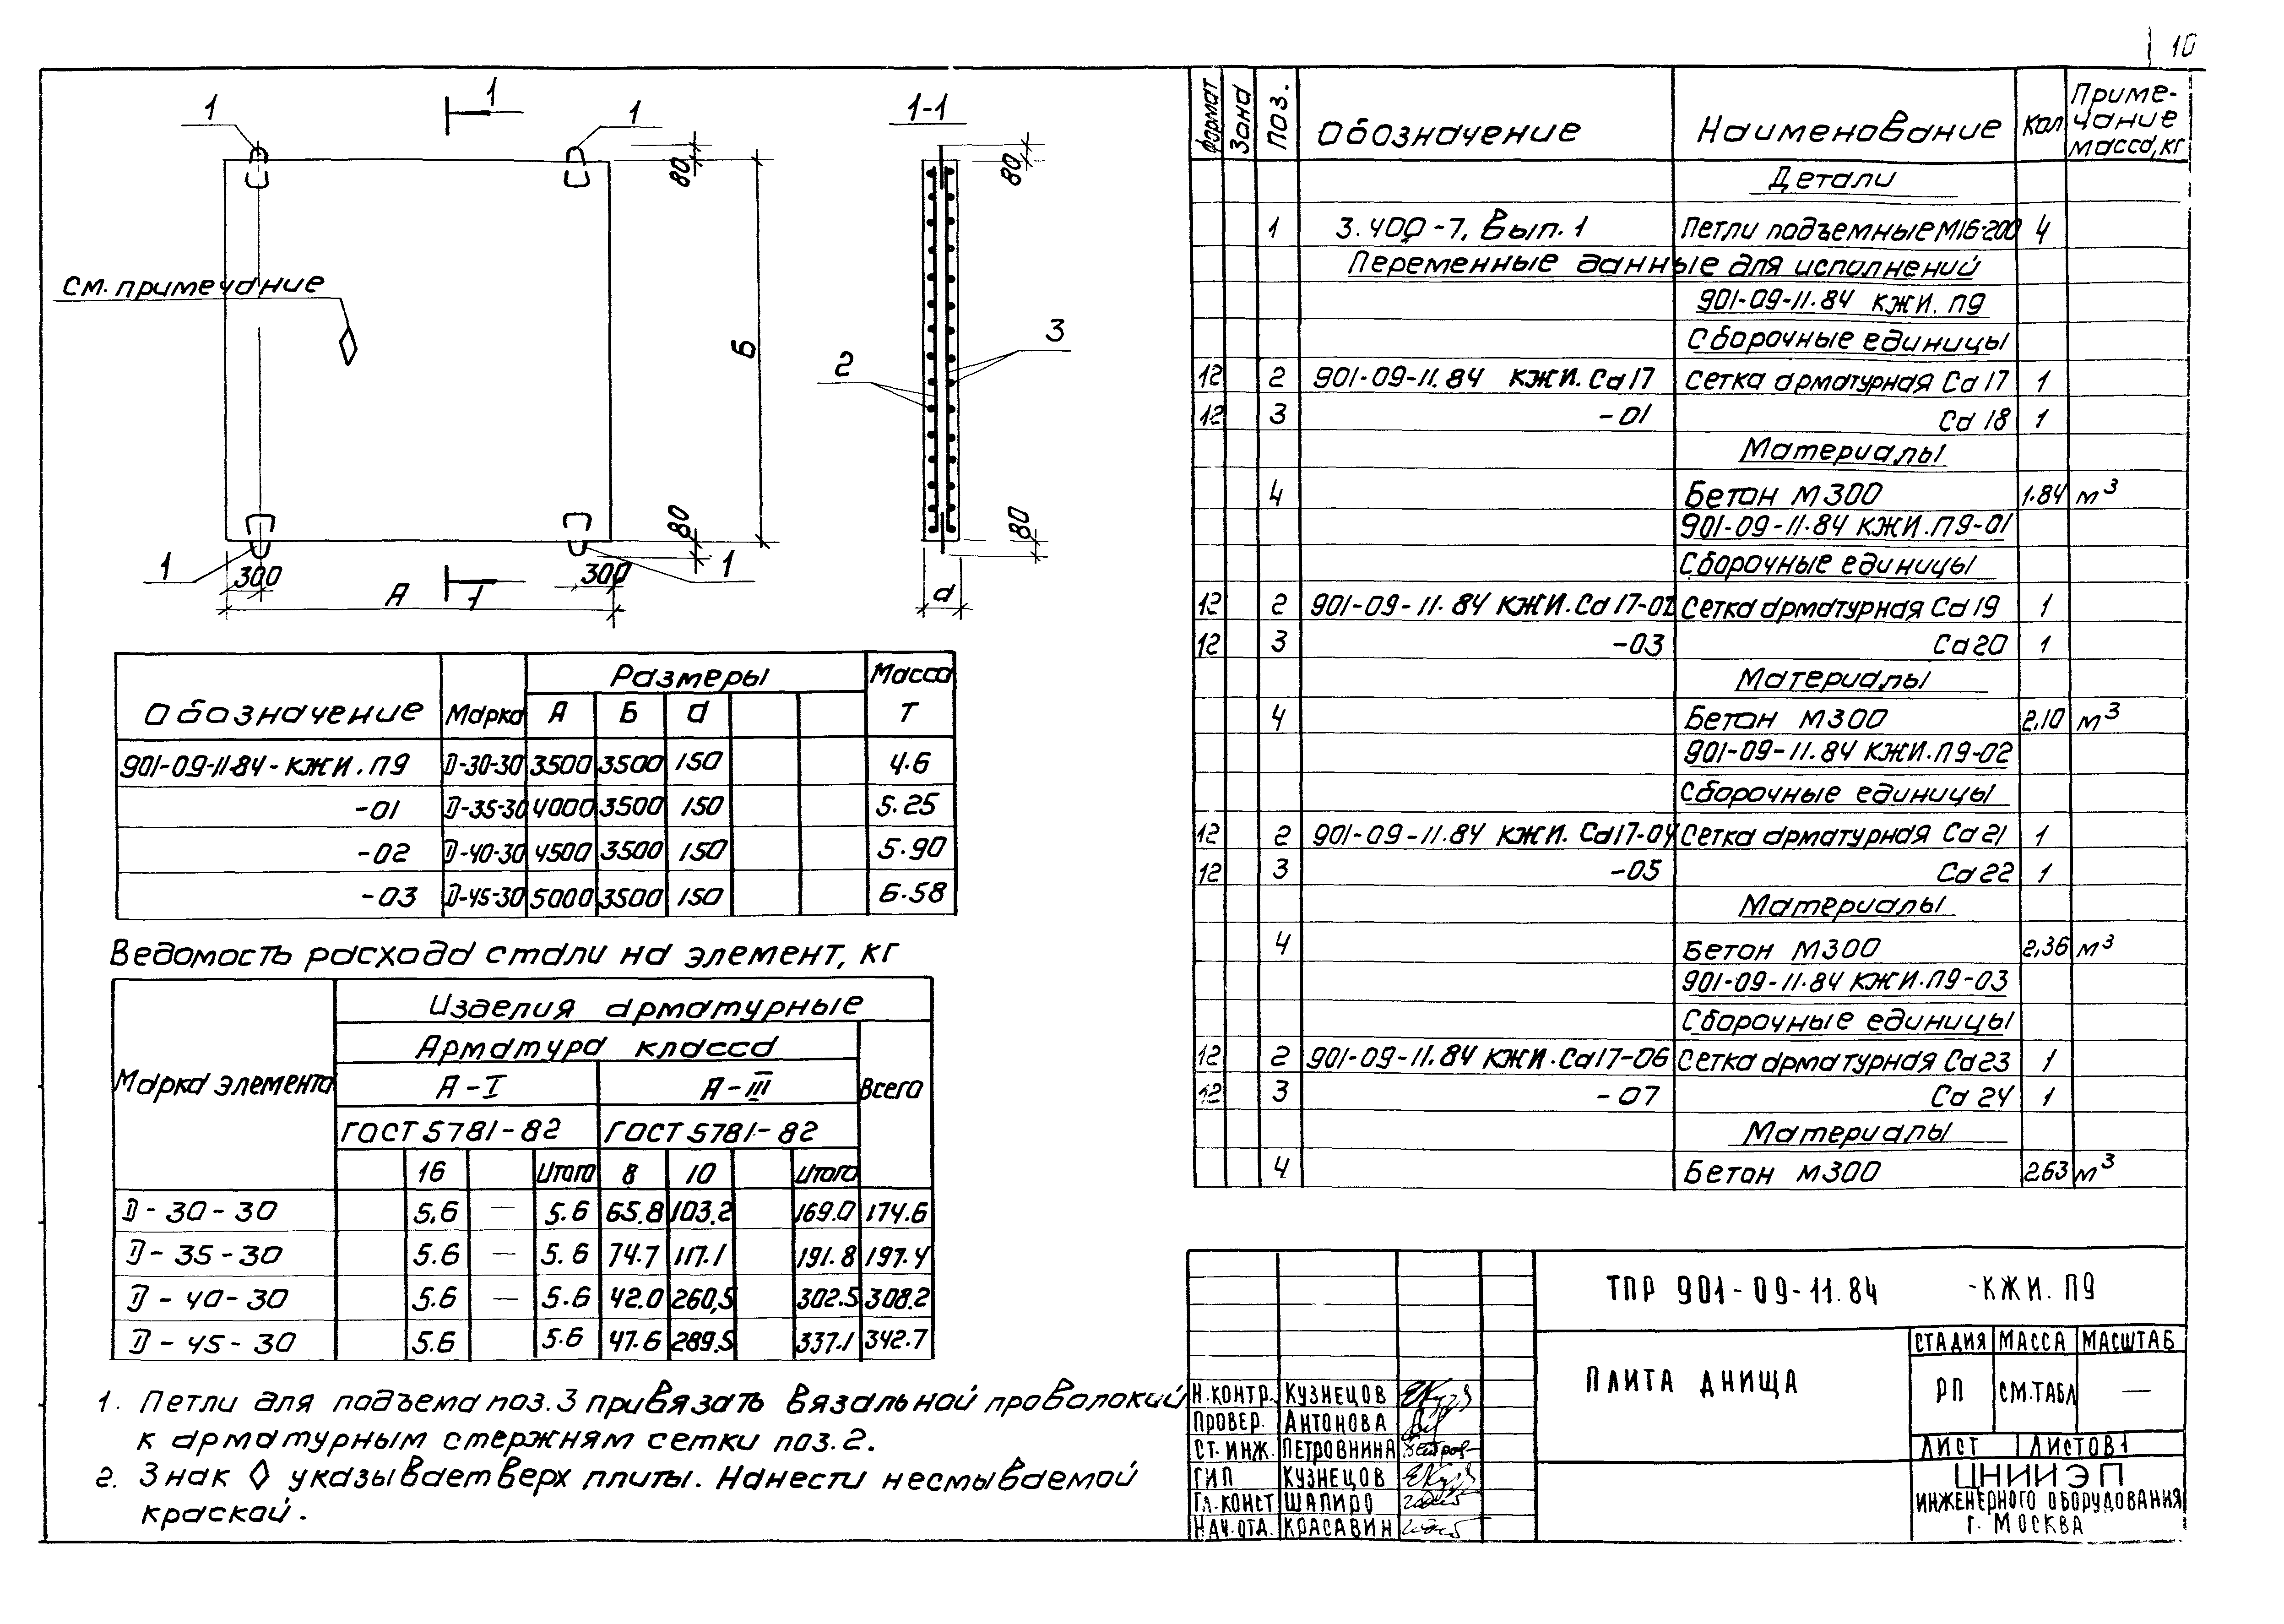 10
1
1
1
1-1
80
80
См. примечание
Б
2
3
80
80
1
300
300
1
А
1
d
Обозначение Марка Размеры Масса
А Б d Т
901-09-11.84-КЖИ.П9 D-30-30 3500 3500 150 4.6
-01 D-35-30 4000 3500 150 5.25
-02 D-40-30 4500 3500 150 5.90
-03 D-45-30 5000 3500 150 6.58
Ведомость расхода стали на элемент, кг
Марка элемента Изделия арматурные
Арматура класса
А-I А-III Всего
ГОСТ 5781-82 ГОСТ 5781-82
16 Итого 8 10 Итого
D-30-30 5.6 — 5.6 65.8 103.2 169.0 174.6
D-35-30 5.6 — 5.6 74.7 117.1 191.8 197.4
D-40-30 5.6 — 5.6 42.0 260,5 302.5 308.2
D-45-30 5.6 5.6 47.6 289.5 337.1 342.7
1. Петли для подъема поз.3 привязать вязальной проволокий
к арматурным стержням сетки поз.2.
2. Знак ◊ указывает верх плиты. Нанести несмываемой
краской.
Формат Зона Поз. Обозначение Наименование Кол Приме-
чание
масса,кг
Детали
1 3.400-7, Вып. 1 Петли подъемные М16-200 4
Переменные данные для исполнений
901-09-11.84 КЖИ.П9
Сборочные единицы
12 2 901-09-11.84 КЖИ.Сd17 Сетка арматурная Сd17 1
12 3 -01 Сd 18 1
Материалы
4 Бетон М300 1.84 м³
901-09-11.84 КЖИ.П9-01
Сборочные единицы
12 2 901-09-11.84 КЖИ.Сd17-02 Сетка арматурная Сd19 1
12 3 -03 Сd20 1
Материалы
4 Бетон М300 2,10 м³
901-09-11.84 КЖИ.П9-02
Сборочные единицы
12 2 901-09-11.84 КЖИ.Сd17-04 Сетка арматурная Сd21 1
12 3 -05 Сd22 1
Материалы
4 Бетон М300 2,36 м³
901-09-11.84 КЖИ.П9-03
Сборочные единицы
12 2 901-09-11.84 КЖИ.Сd17-06 Сетка арматурная Сd23 1
12 3 -07 Сd 24 1
Материалы
4 Бетон М300 2.63 м³
ТПР 901-09-11.84 -КЖИ.П9
ПЛИТА ДНИЩА
СТАДИЯ МАССА МАСШТАБ
РП СМ.ТАБЛ —
ЛИСТ ЛИСТОВ 1
ЦНИИЭП
ИНЖЕНЕРНОГО ОБОРУДОВАНИЯ
Г. МОСКВА
Н.КОНТР. КУЗНЕЦОВ
ПРОВЕР. АНТОНОВА
СТ.ИНЖ. ПЕТРОВНИНА
ГИП КУЗНЕЦОВ
ГЛ.КОНСТ ШАПИРО
НАЧ.ОТД. КРАСАВИН